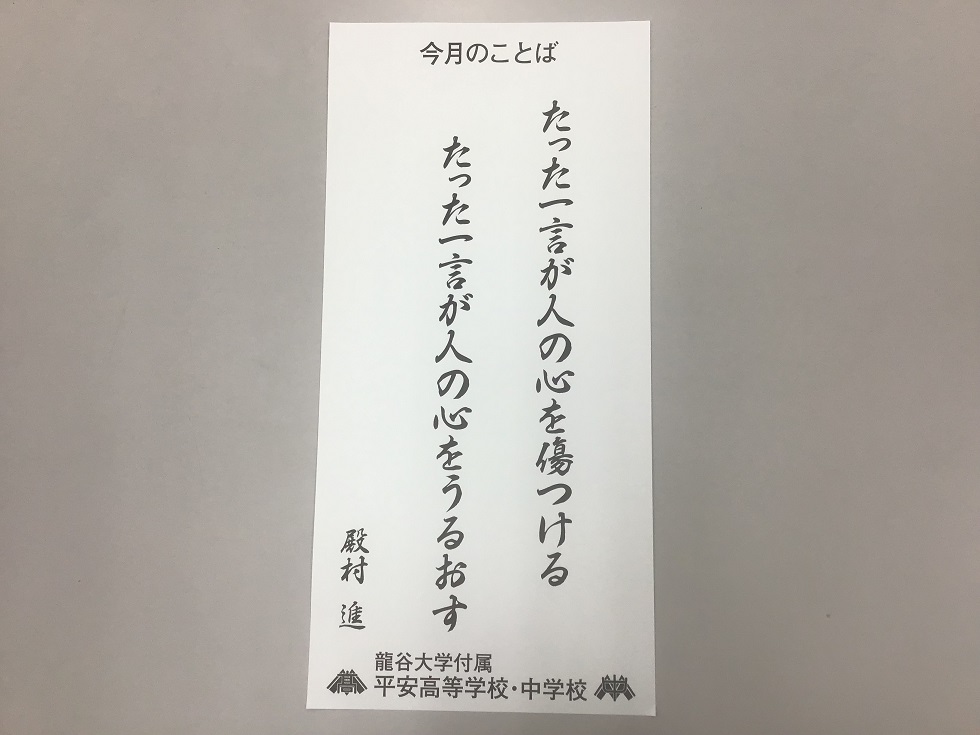 今月のことば
たった一言が人の心を傷つける
たった一言が人の心をうるおす
殿村 進
龍谷大学付属
平安高等学校・中学校